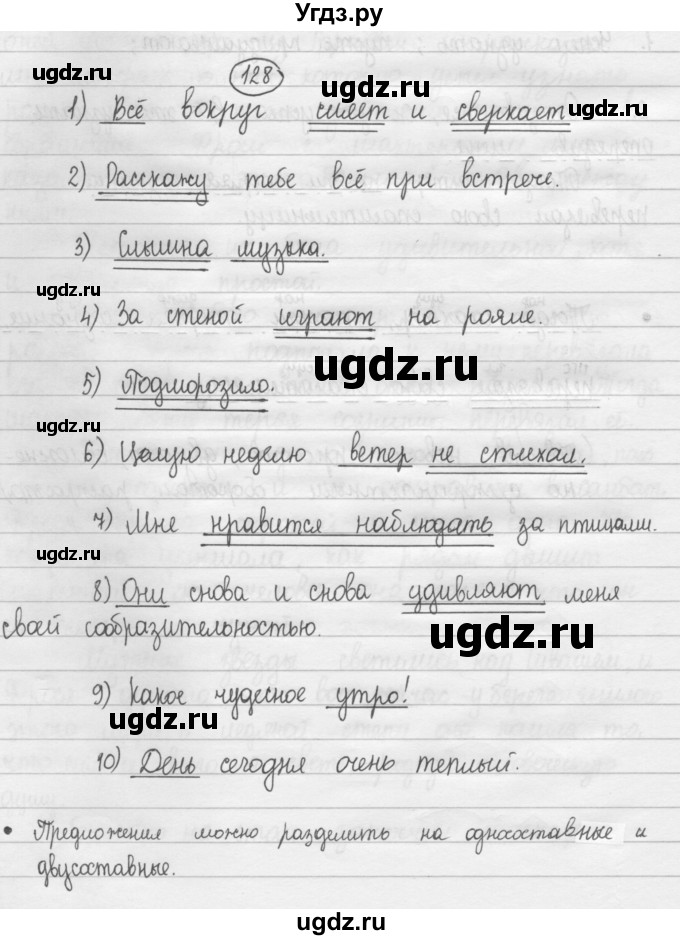 Угдз.ру
128
1) Всё вокруг сияет и сверкает.
2) Расскажу тебе всё при встрече.
3) Слышна музыка.
4) За стеной играют на рояле.
5) Подморозило.
6) Целую неделю ветер не стихал.
7) Мне нравится наблюдать за птицами.
8) Они снова и снова удивляют меня
своей сообразительностью.
9) Какое чудесное утро!
10) День сегодня очень теплый.
• Предложения можно разделить на односоставные и
двусоставные.
ugdz.ru
ugdz.ru
ugdz.ru
ugdz.ru
ugdz.ru
ugdz.ru
ugdz.ru
ugdz.ru
ugdz.ru
ugdz.ru